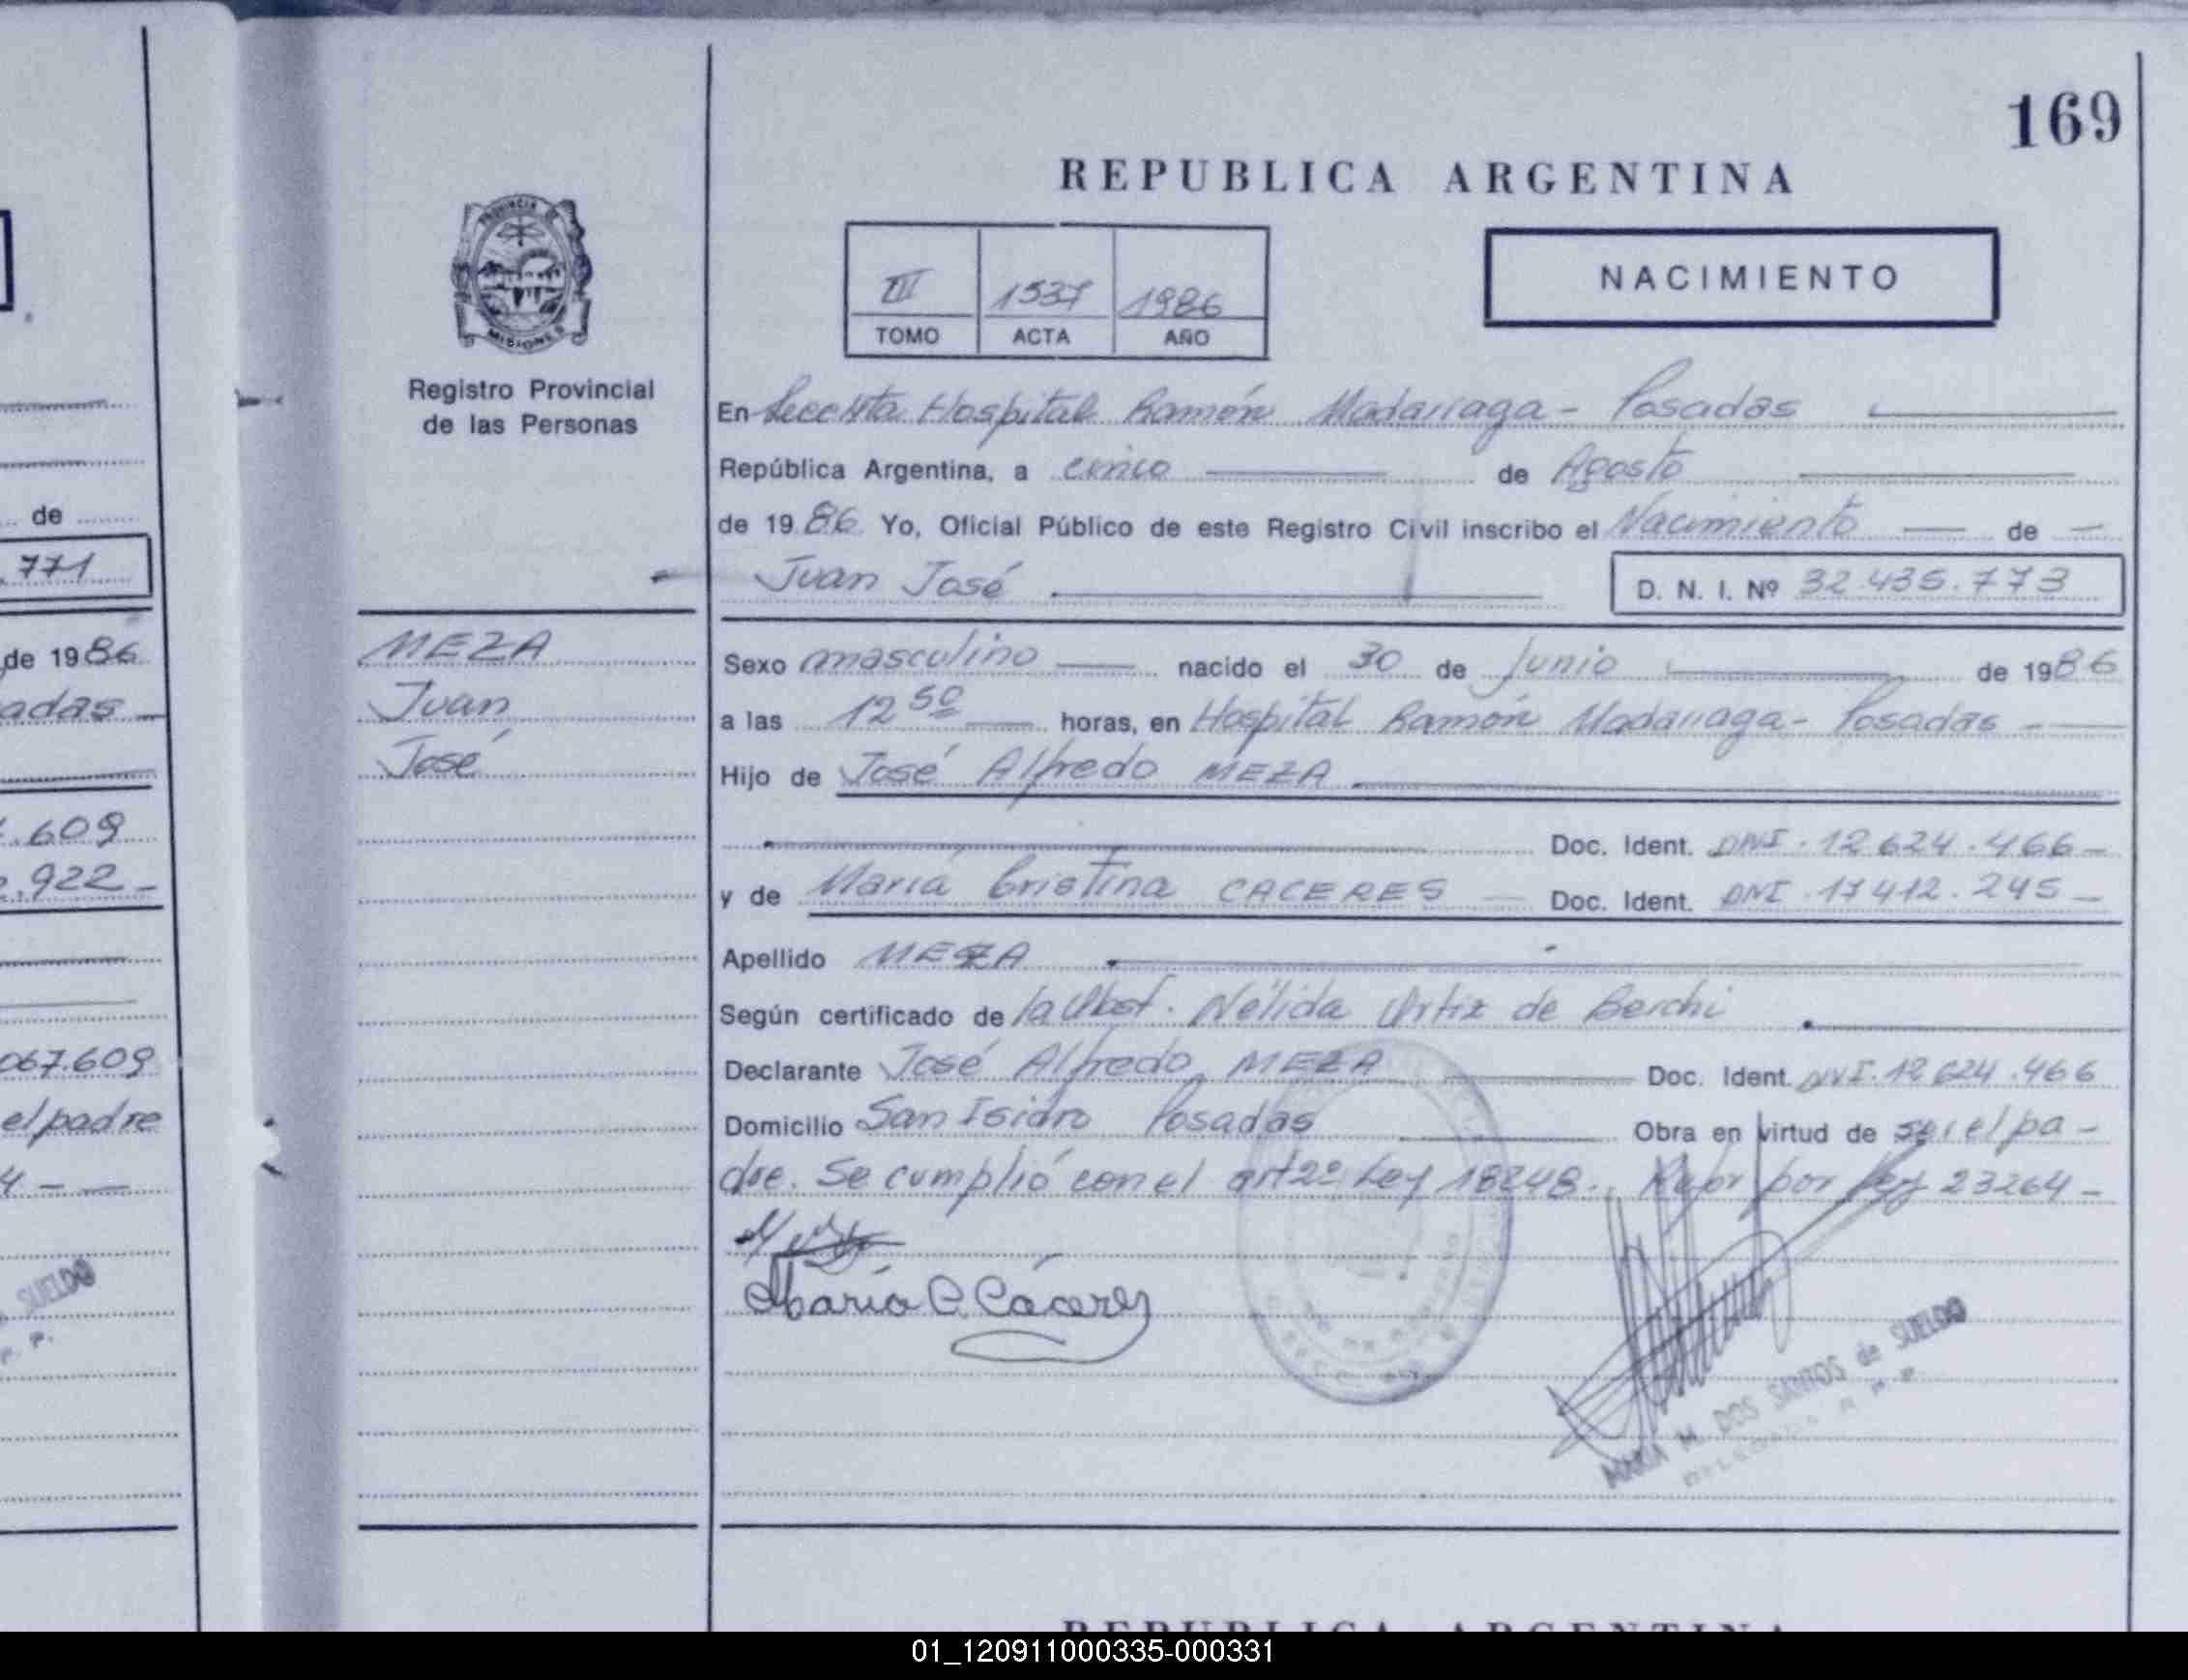 169
REPUBLICA ARGENTINA
PROVINCIA DE
MISIONES
Registro Provincial
de las Personas
III 1537 1986
TOMO ACTA AÑO
NACIMIENTO
En Hospital Ramón Madariaga - Posadas
República Argentina, a cinco de Agosto
de 1986 Yo, Oficial Público de este Registro Civil inscribo el Nacimiento de
Juan José D. N. I. Nº 32.435.773
MEZA
Juan
José
Sexo masculino nacido el 30 de Junio de 1986
a las 12 50 horas, en Hospital Ramón Madariaga - Posadas -
Hijo de José Alfredo MEZA
Doc. Ident. DNI - 12.624.466 -
y de María Cristina CACERES Doc. Ident. DNI - 17.412.245 -
Apellido MEZA
Según certificado de la Obst. Nélida Ortiz de Berchi
Declarante José Alfredo MEZA Doc. Ident. DNI. 12.624.466
Domicilio San Isidro Posadas Obra en virtud de ser el pa -
dre. Se cumplió con el art 2º Ley 18248. por Ley 23264 -
María C. Cáceres
MARIA M. DOS SANTOS de SUELDO
de
771
de 1986
adas
.609
.922 -
067.609
el padre
4 -
SUELDO
REPUBLICA ARGENTINA
01_120911000335-000331